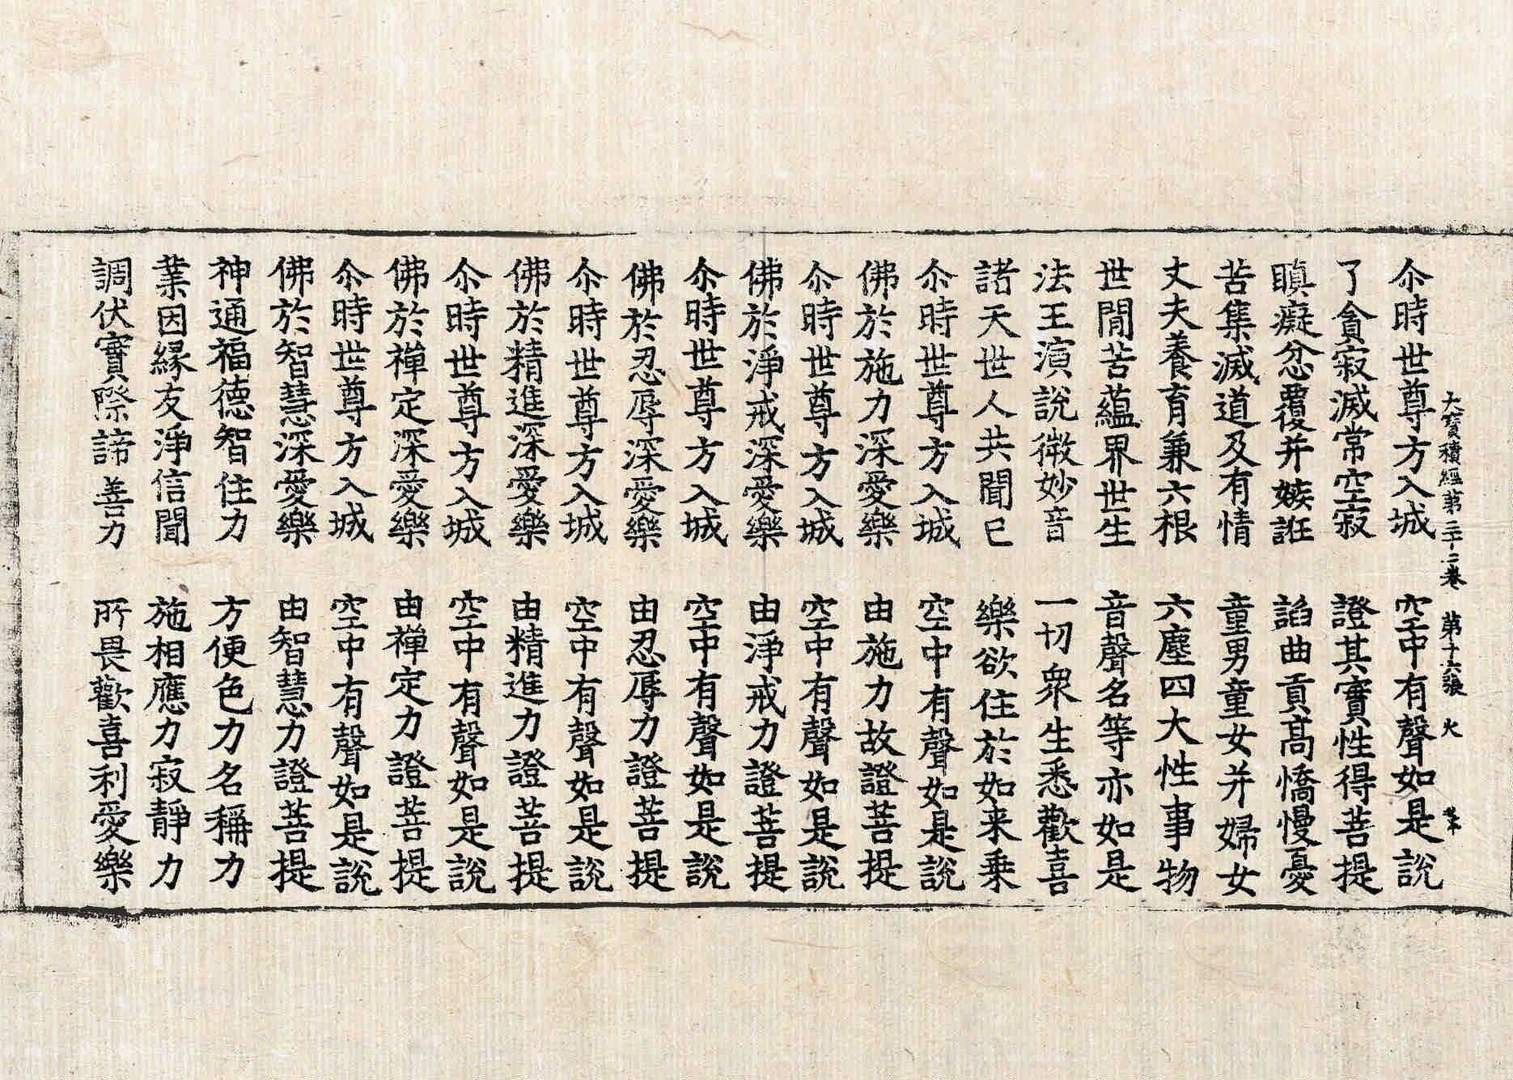 大寶積經第三十二卷 第十六張 火
尒時世尊方入城 空中有聲如是說
了貪寂滅常空寂 證其實性得菩提
瞋癡忿覆并嫉誑 諂曲貢高憍慢憂
苦集滅道及有情 童男童女并婦女
丈夫養育兼六根 六塵四大性事物
世間苦蘊界世生 音聲名等亦如是
法王演說微妙音 一切衆生悉歡喜
諸天世人共聞已 樂欲住於如来乗
尒時世尊方入城 空中有聲如是說
佛於施力深愛樂 由施力故證菩提
尒時世尊方入城 空中有聲如是說
佛於淨戒深愛樂 由淨戒力證菩提
尒時世尊方入城 空中有聲如是說
佛於忍辱深愛樂 由忍辱力證菩提
尒時世尊方入城 空中有聲如是說
佛於精進深愛樂 由精進力證菩提
尒時世尊方入城 空中有聲如是說
佛於禪定深愛樂 由禪定力證菩提
尒時世尊方入城 空中有聲如是說
佛於智慧深愛樂 由智慧力證菩提
神通福德智住力 方便色力名稱力
業因緣友淨信聞 施相應力寂靜力
調伏實際諦善力 所畏歡喜利愛樂